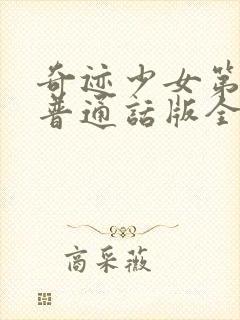 奇迹少女第
普通話版全
商采薇